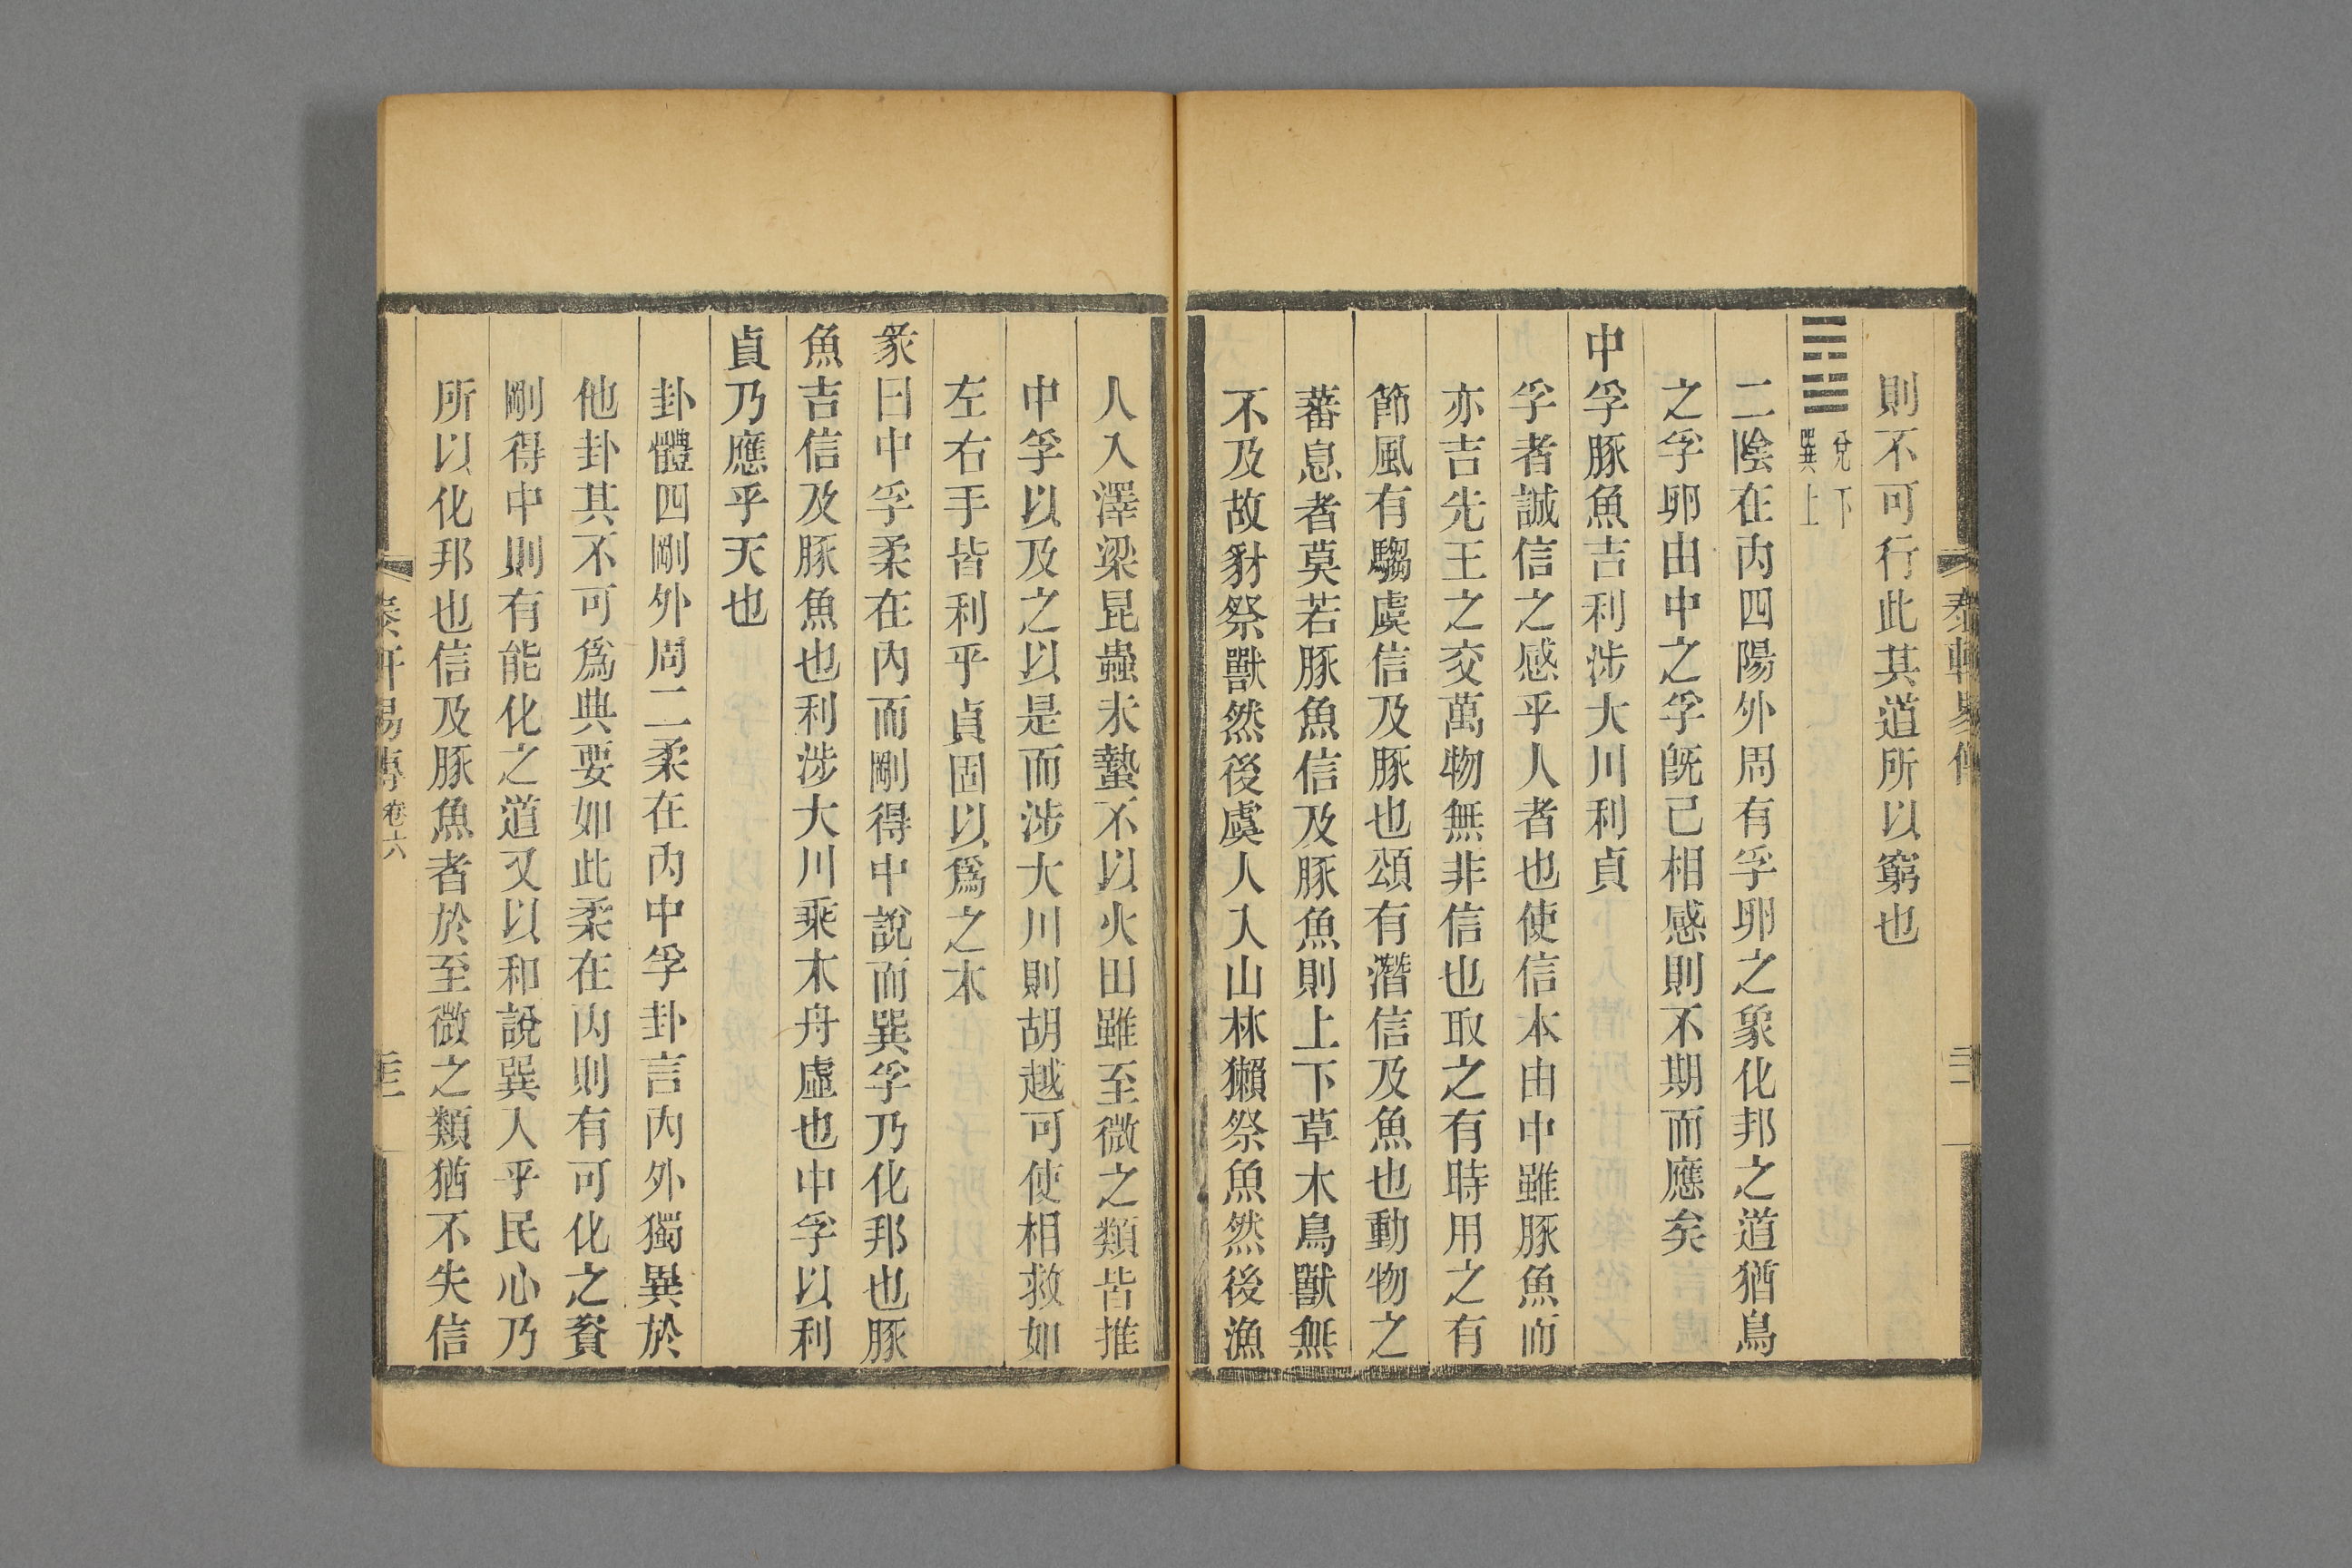 則不可行此其道所以窮也
䷼兌下巽上
二陰在内四陽外周有孚卵之象化邦之道猶鳥
之孚卵由中之孚旣已相感則不期而應矣
中孚豚魚吉利涉大川利貞
孚者誠信之感乎人者也使信本由中雖豚魚而
亦吉先王之交萬物無非信也取之有時用之有
節風有騶虞信及豚也頌有潛信及魚也動物之
蕃息者莫若豚魚信及豚魚則上下草木鳥獸無
不及故豺祭獸然後虞人入山林獺祭魚然後漁
人入澤梁昆蟲未蟄不以火田雖至微之類皆推
中孚以及之以是而涉大川則胡越可使相救如
左右手皆利乎貞固以爲之本
彖曰中孚柔在内而剛得中說而巽孚乃化邦也豚
魚吉信及豚魚也利涉大川乘木舟虛也中孚以利
貞乃應乎天也
卦體四剛外周二柔在内中孚卦言内外獨異於
他卦其不可爲典要如此柔在内則有可化之資
剛得中則有能化之道又以和說巽人乎民心乃
所以化邦也信及豚魚者於至微之類猶不失信
易傳卷六